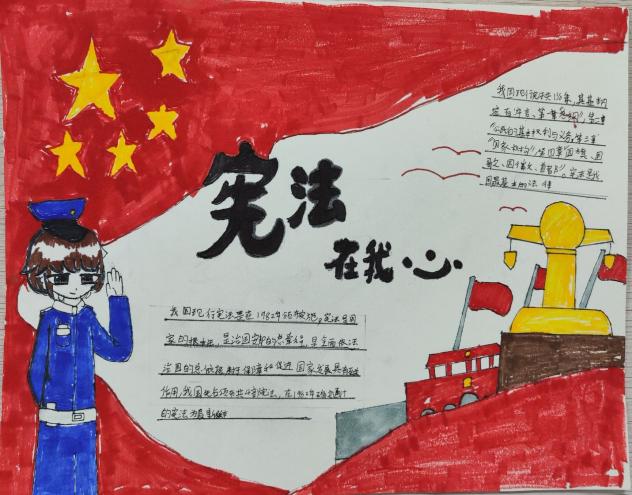 宪法
在我心
我国现行宪法共138条,其基本内
容有序言、第一章"总纲"、第二章
"公民的基本权利与义务,第三章
"国家机构"、第四章"国旗、国
歌、国徽、首都"。宪法是我
国最基本的法律
我国现行宪法是在1982年颁布,宪法是国
家的根本法,是治国安邦的总章程,是全面依法
治国的总依据,对于保障和促进国家发展具有
作用,我国先后颁布共4部宪法,在1982年
的宪法为最